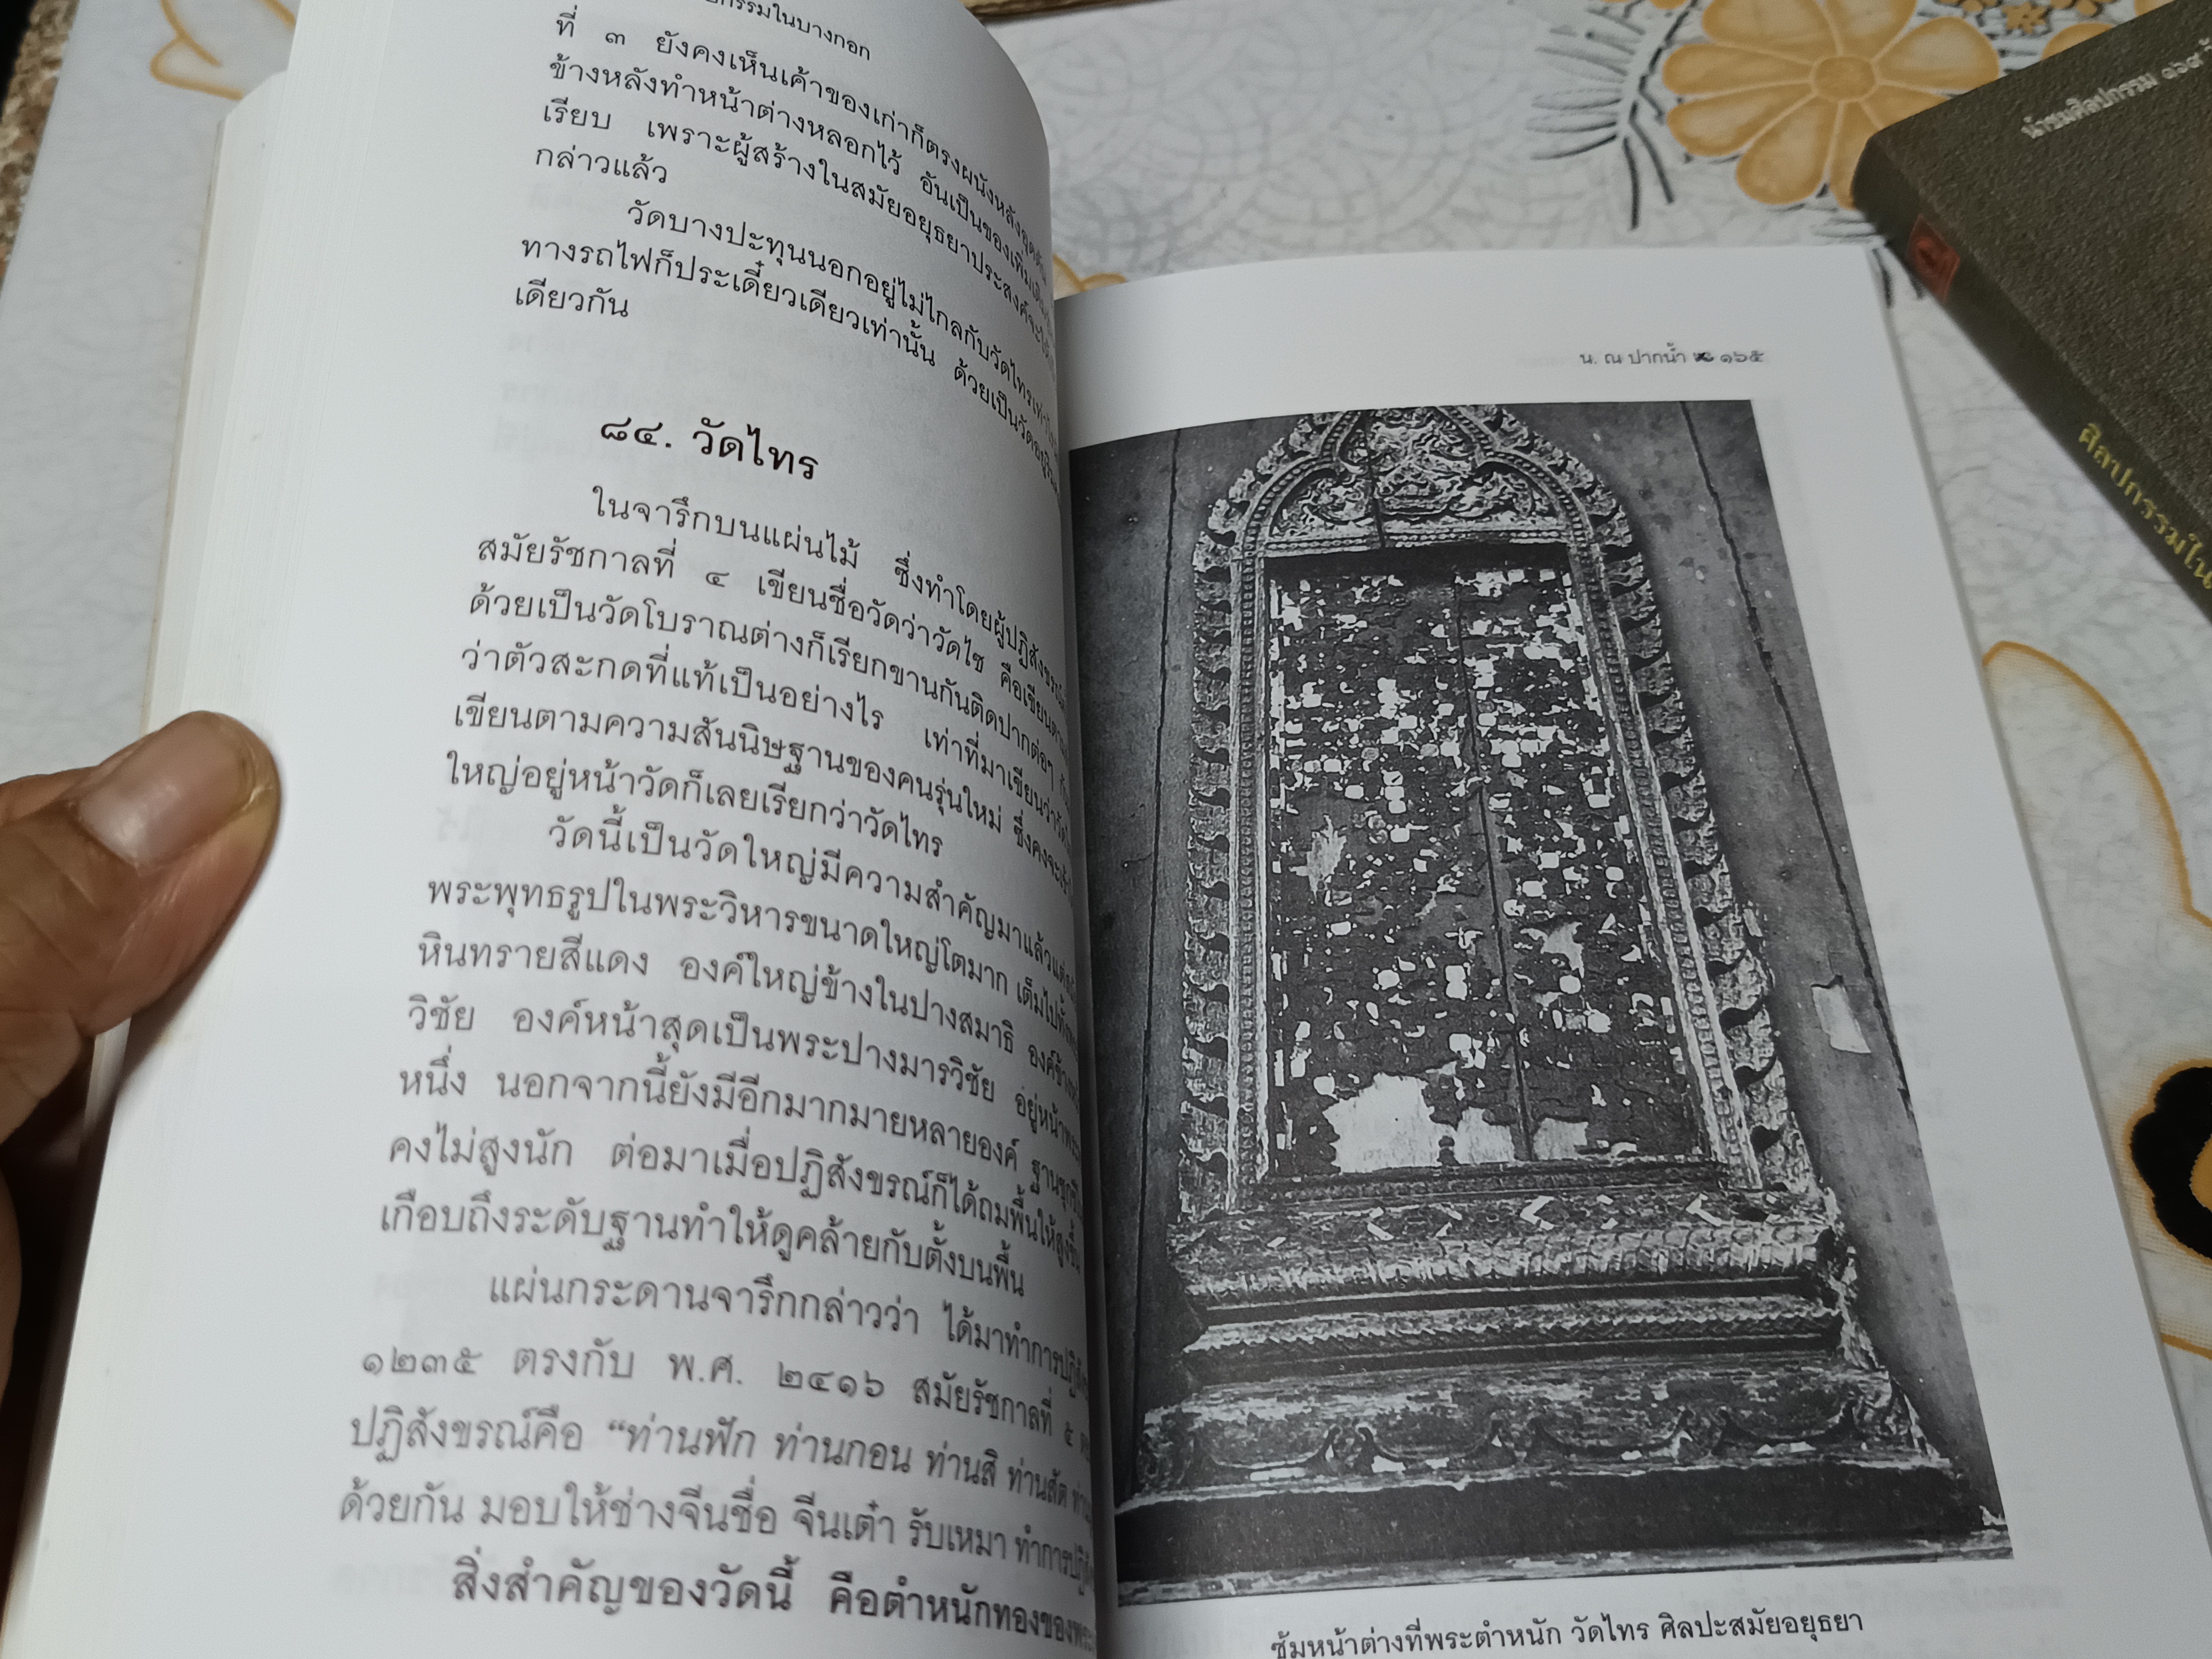 ปกรรมในบางกอก
ที่ ๓ ยังคงเห็นเค้าของเก่าก็ตรงผนังหลังอุด
ข้างหลังทำหน้าต่างหลอกไว้ อันเป็นของเพิ่มเติม
เรียบ เพราะผู้สร้างในสมัยอยุธยาประสงค์จะ
กล่าวแล้ว
วัดบางปะทุนนอกอยู่ไม่ไกลกับวัดไทรเท่า
ทางรถไฟก็ประเดี๋ยวเดียวเท่านั้น ด้วยเป็นวัดอยู่
เดียวกัน
๘๔. วัดไทร
ในจารึกบนแผ่นไม้ ซึ่งทำโดยผู้ปฏิสังขรณ์
สมัยรัชกาลที่ ๔ เขียนชื่อวัดว่าวัดไซ คือเขียนตาม
ด้วยเป็นวัดโบราณต่างก็เรียกขานกันติดปากต่อๆ กัน
ว่าตัวสะกดที่แท้เป็นอย่างไร เท่าที่มาเขียนว่าวัด
เขียนตามความสันนิษฐานของคนรุ่นใหม่ ซึ่งคงจะ
ใหญ่อยู่หน้าวัดก็เลยเรียกว่าวัดไทร
วัดนี้เป็นวัดใหญ่มีความสำคัญมาแล้วแต่
พระพุทธรูปในพระวิหารขนาดใหญ่โตมาก เต็มไปทั้ง
หินทรายสีแดง องค์ใหญ่ข้างในปางสมาธิ องค์ข้าง
วิชัย องค์หน้าสุดเป็นพระปางมารวิชัย อยู่หน้าพระ
หนึ่ง นอกจากนี้ยังมีอีกมากมายหลายองค์ ฐานชุกชี
คงไม่สูงนัก ต่อมาเมื่อปฏิสังขรณ์ก็ได้ถมพื้นให้สูงขึ้น
เกือบถึงระดับฐานทำให้ดูคล้ายกับตั้งบนพื้น
แผ่นกระดานจารึกกล่าวว่า ได้มาทำการ
๑๒๓๕ ตรงกับ พ.ศ. ๒๔๑๖ สมัยรัชกาลที่ ๕
ปฏิสังขรณ์คือ “ท่านฟัก ท่านกอน ท่านสิ ท่านสัด
ด้วยกัน มอบให้ช่างจีนชื่อ จีนเต๋า รับเหมา ทำการ
สิ่งสำคัญของวัดนี้ คือตำหนักทองของพระ
น. ณ ปากน้ำ ๑๖๕
ซุ้มหน้าต่างที่พระตำหนัก วัดไทร ศิลปะสมัยอยุธยา
นำชมศิลปกรรม ๑๖๙
ศิลปกรรมใน